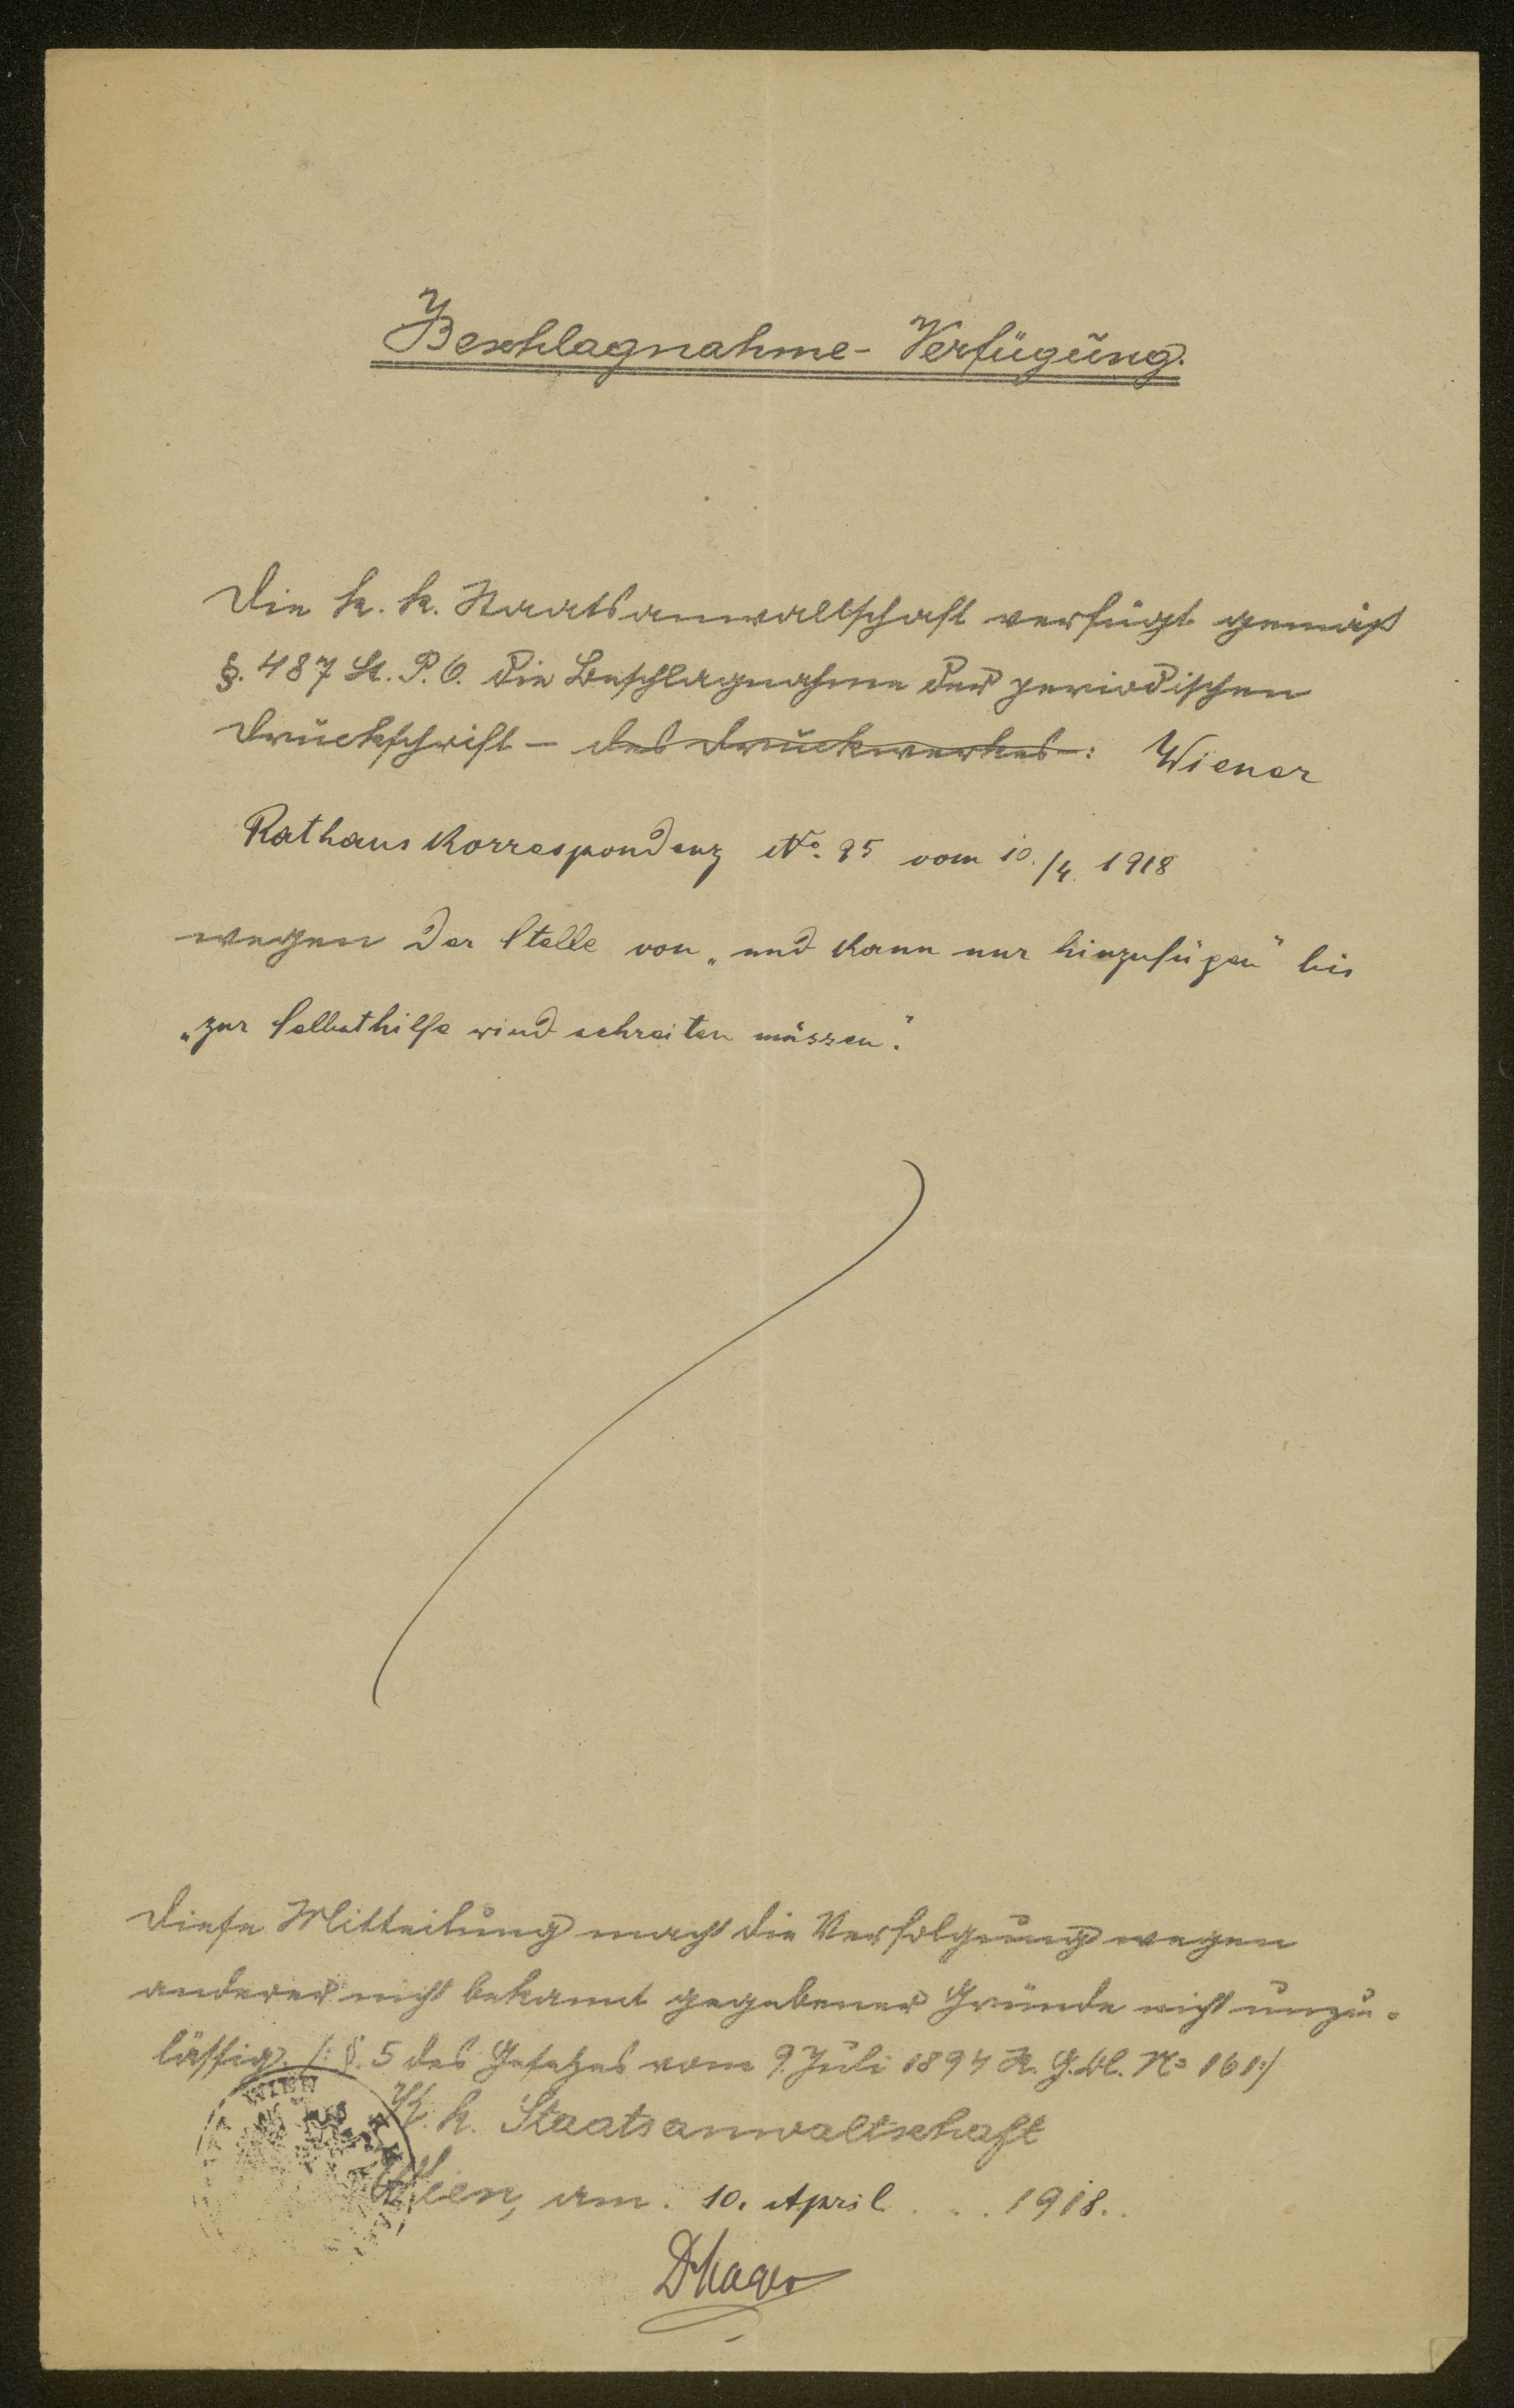 Beschlagnahme-Verfügung.
Die k. k. Staatsanwaltschaft verfügt gemäß
§. 487 St. P. O. die Beschlagnahme der periodischen
Druckschrift – des Druckwerkes: Wiener
Rathauskorrespondenz No. 95 vom 10./4. 1918
wegen der Stelle von „und kann nur hinzufügen" bis
„zur Selbsthilfe wird schreiten müssen".
Diese Mitteilung macht die Verfolgung wegen
anderer nicht bekannt gegebener Gründe nicht unzu-
lässig. /: §. 5 des Gesetzes vom 9. Juli 1894 R. G. Bl. No 161:/
K. k. Staatsanwaltschaft
WIEN
Wien, am. 10. April . . . 1918..